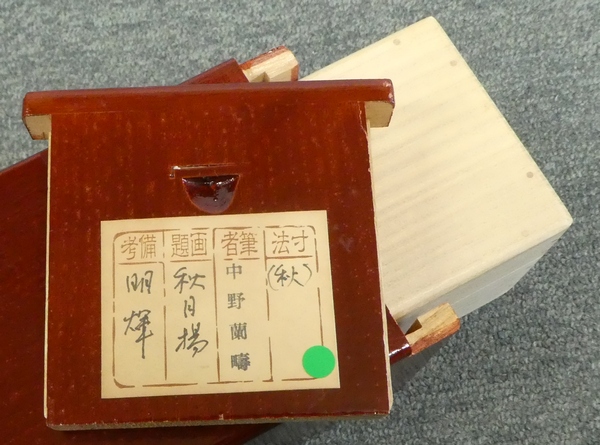 寸法
(秋)
筆者
中野蘭疇
画題
秋月揚
備考
明輝